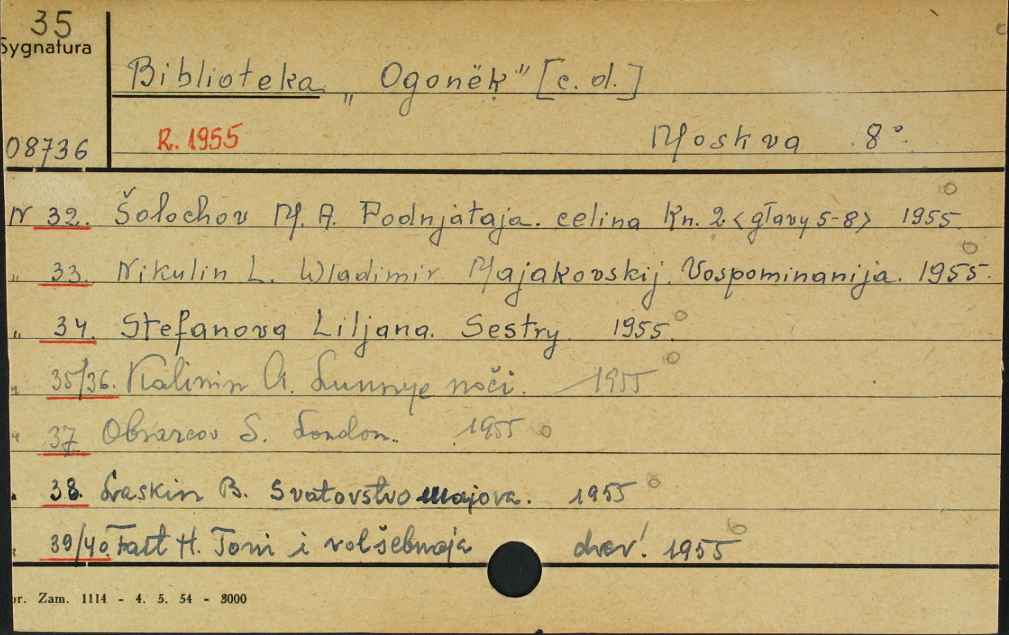 35
Sygnatura
Biblioteka „Ogonëk" [c. d.]
08736 R. 1955 Moskva 8°
N 32. Šolochov M. A. Podnjataja celina Kn. 2 <glavy 5-8> 1955
„ 33. Nikulin L. Wladimir Majakovskij. Vospominanija. 1955.
„ 34. Stefanova Liljana. Sestry 1955
„ 35/36. Kalinin A. Lunnye noči. 1955
„ 37 Obrazcov S. London. 1955
„ 38. Laskin B. Svatovstvo majora. 1955
„ 39/40. Fast H. Toni i volšebnaja dver'. 1955
or. Zam. 1114 - 4. 5. 54 - 3000